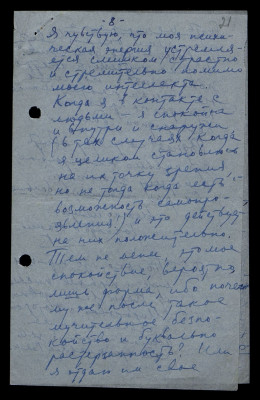 - 8 -
21
Я чувствую, что моя психи-
ческая энергия устремля-
ется слишком страстно
и стремительно помимо
моего интеллекта.
Когда я в контакте с
людьми – я спокойна
и внутри и снаружи
(в тех случаях, когда
я целиком становлюсь
на их точку зрения,
но не тогда когда есть
возможность самопро-
явления!) и это действует
на них положительно.
Тем не менее, это мое
спокойствие, вероятно
лишь форма, ибо почему
же после такое
мучительное беспо-
койство и буквально
растерзанность? Или
я отдаю им свое